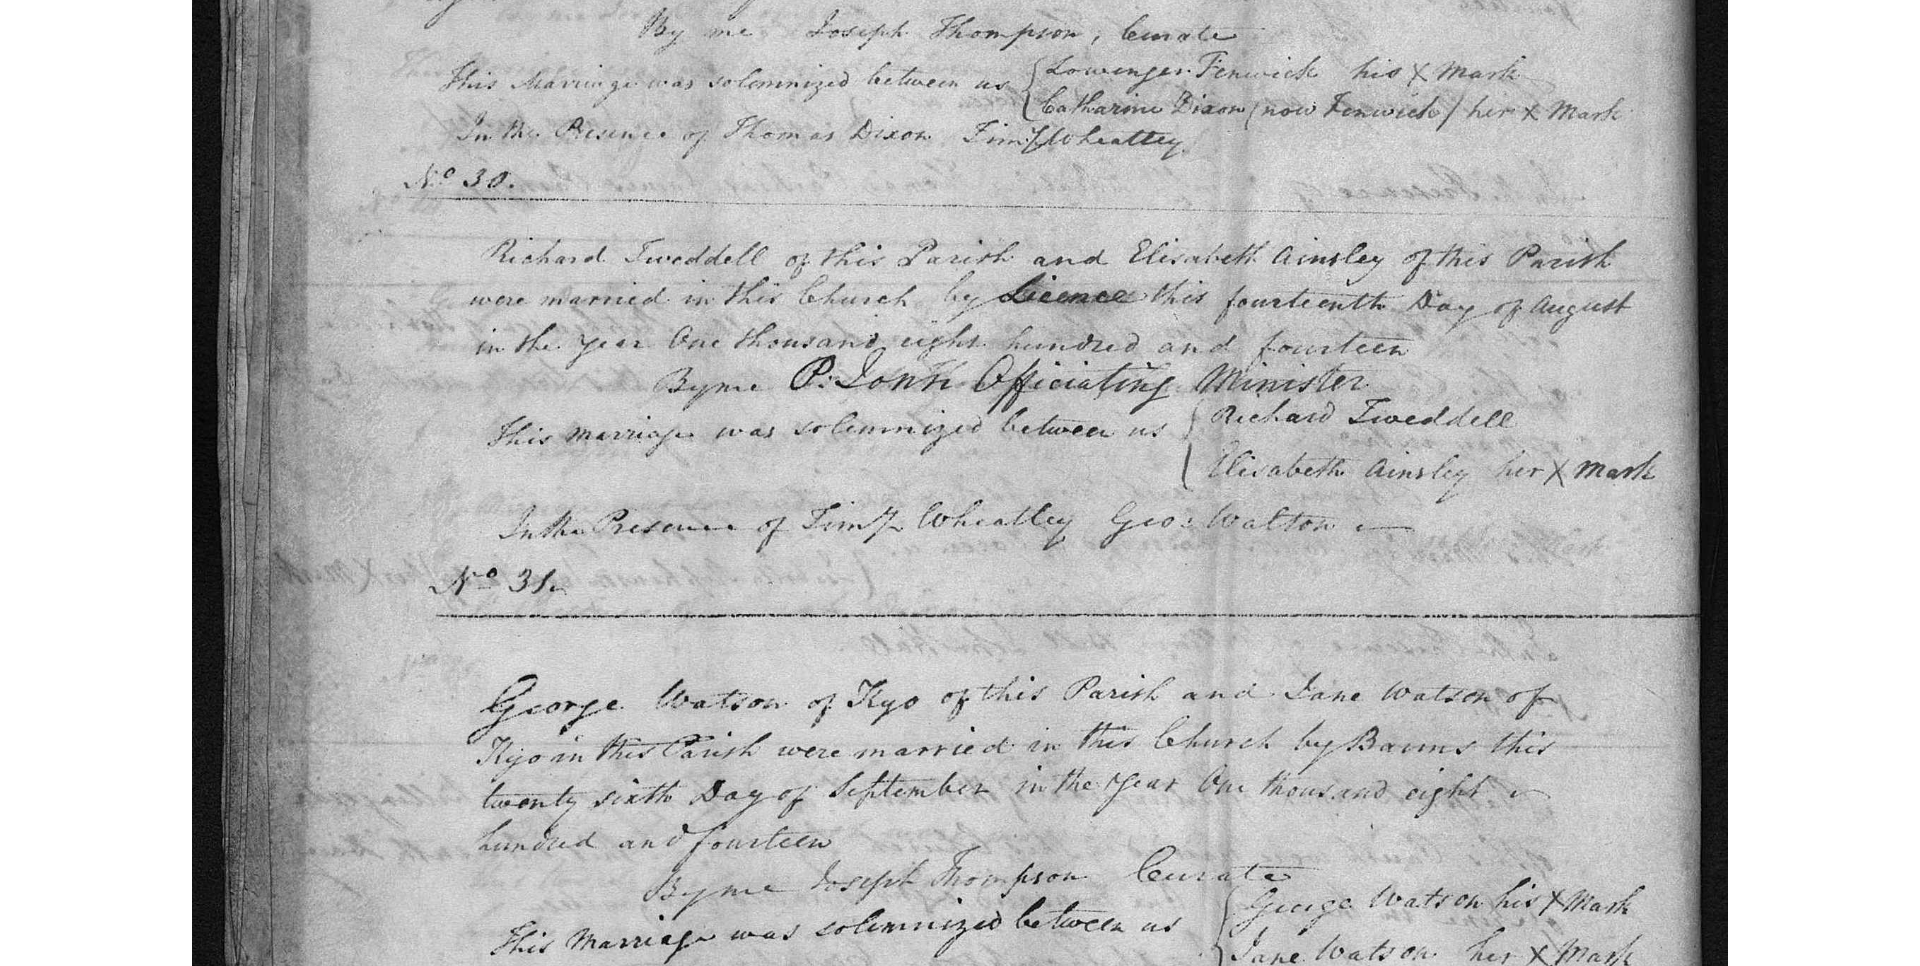 By me Joseph Thompson, Curate
This Marriage was solemnized between us { Lowinger Fenwick his X Mark
Catharine Dixon (now Fenwick) her X Mark
In the Presence of Thomas Dixon Timy Wheatley
No 30.
Richard Tweddell of this Parish and Elisabeth Ainsley of this Parish
were married in this Church by Licence this fourteenth Day of August
in the Year One thousand eight hundred and fourteen
By me P. Jonn Officiating Minister
This Marriage was solemnized between us { Richard Tweddell
Elisabeth Ainsley her X Mark
In the Presence of Timy Wheatley Geo: Walton
No 31.
George Watson of Kyo of this Parish and Jane Watson of
Kyo in this Parish were married in this Church by Banns this
twenty sixth Day of September in the Year One thousand eight
hundred and fourteen
By me Joseph Thompson Curate
This Marriage was solemnized between us { George Watson his X Mark
Jane Watson her X Mark